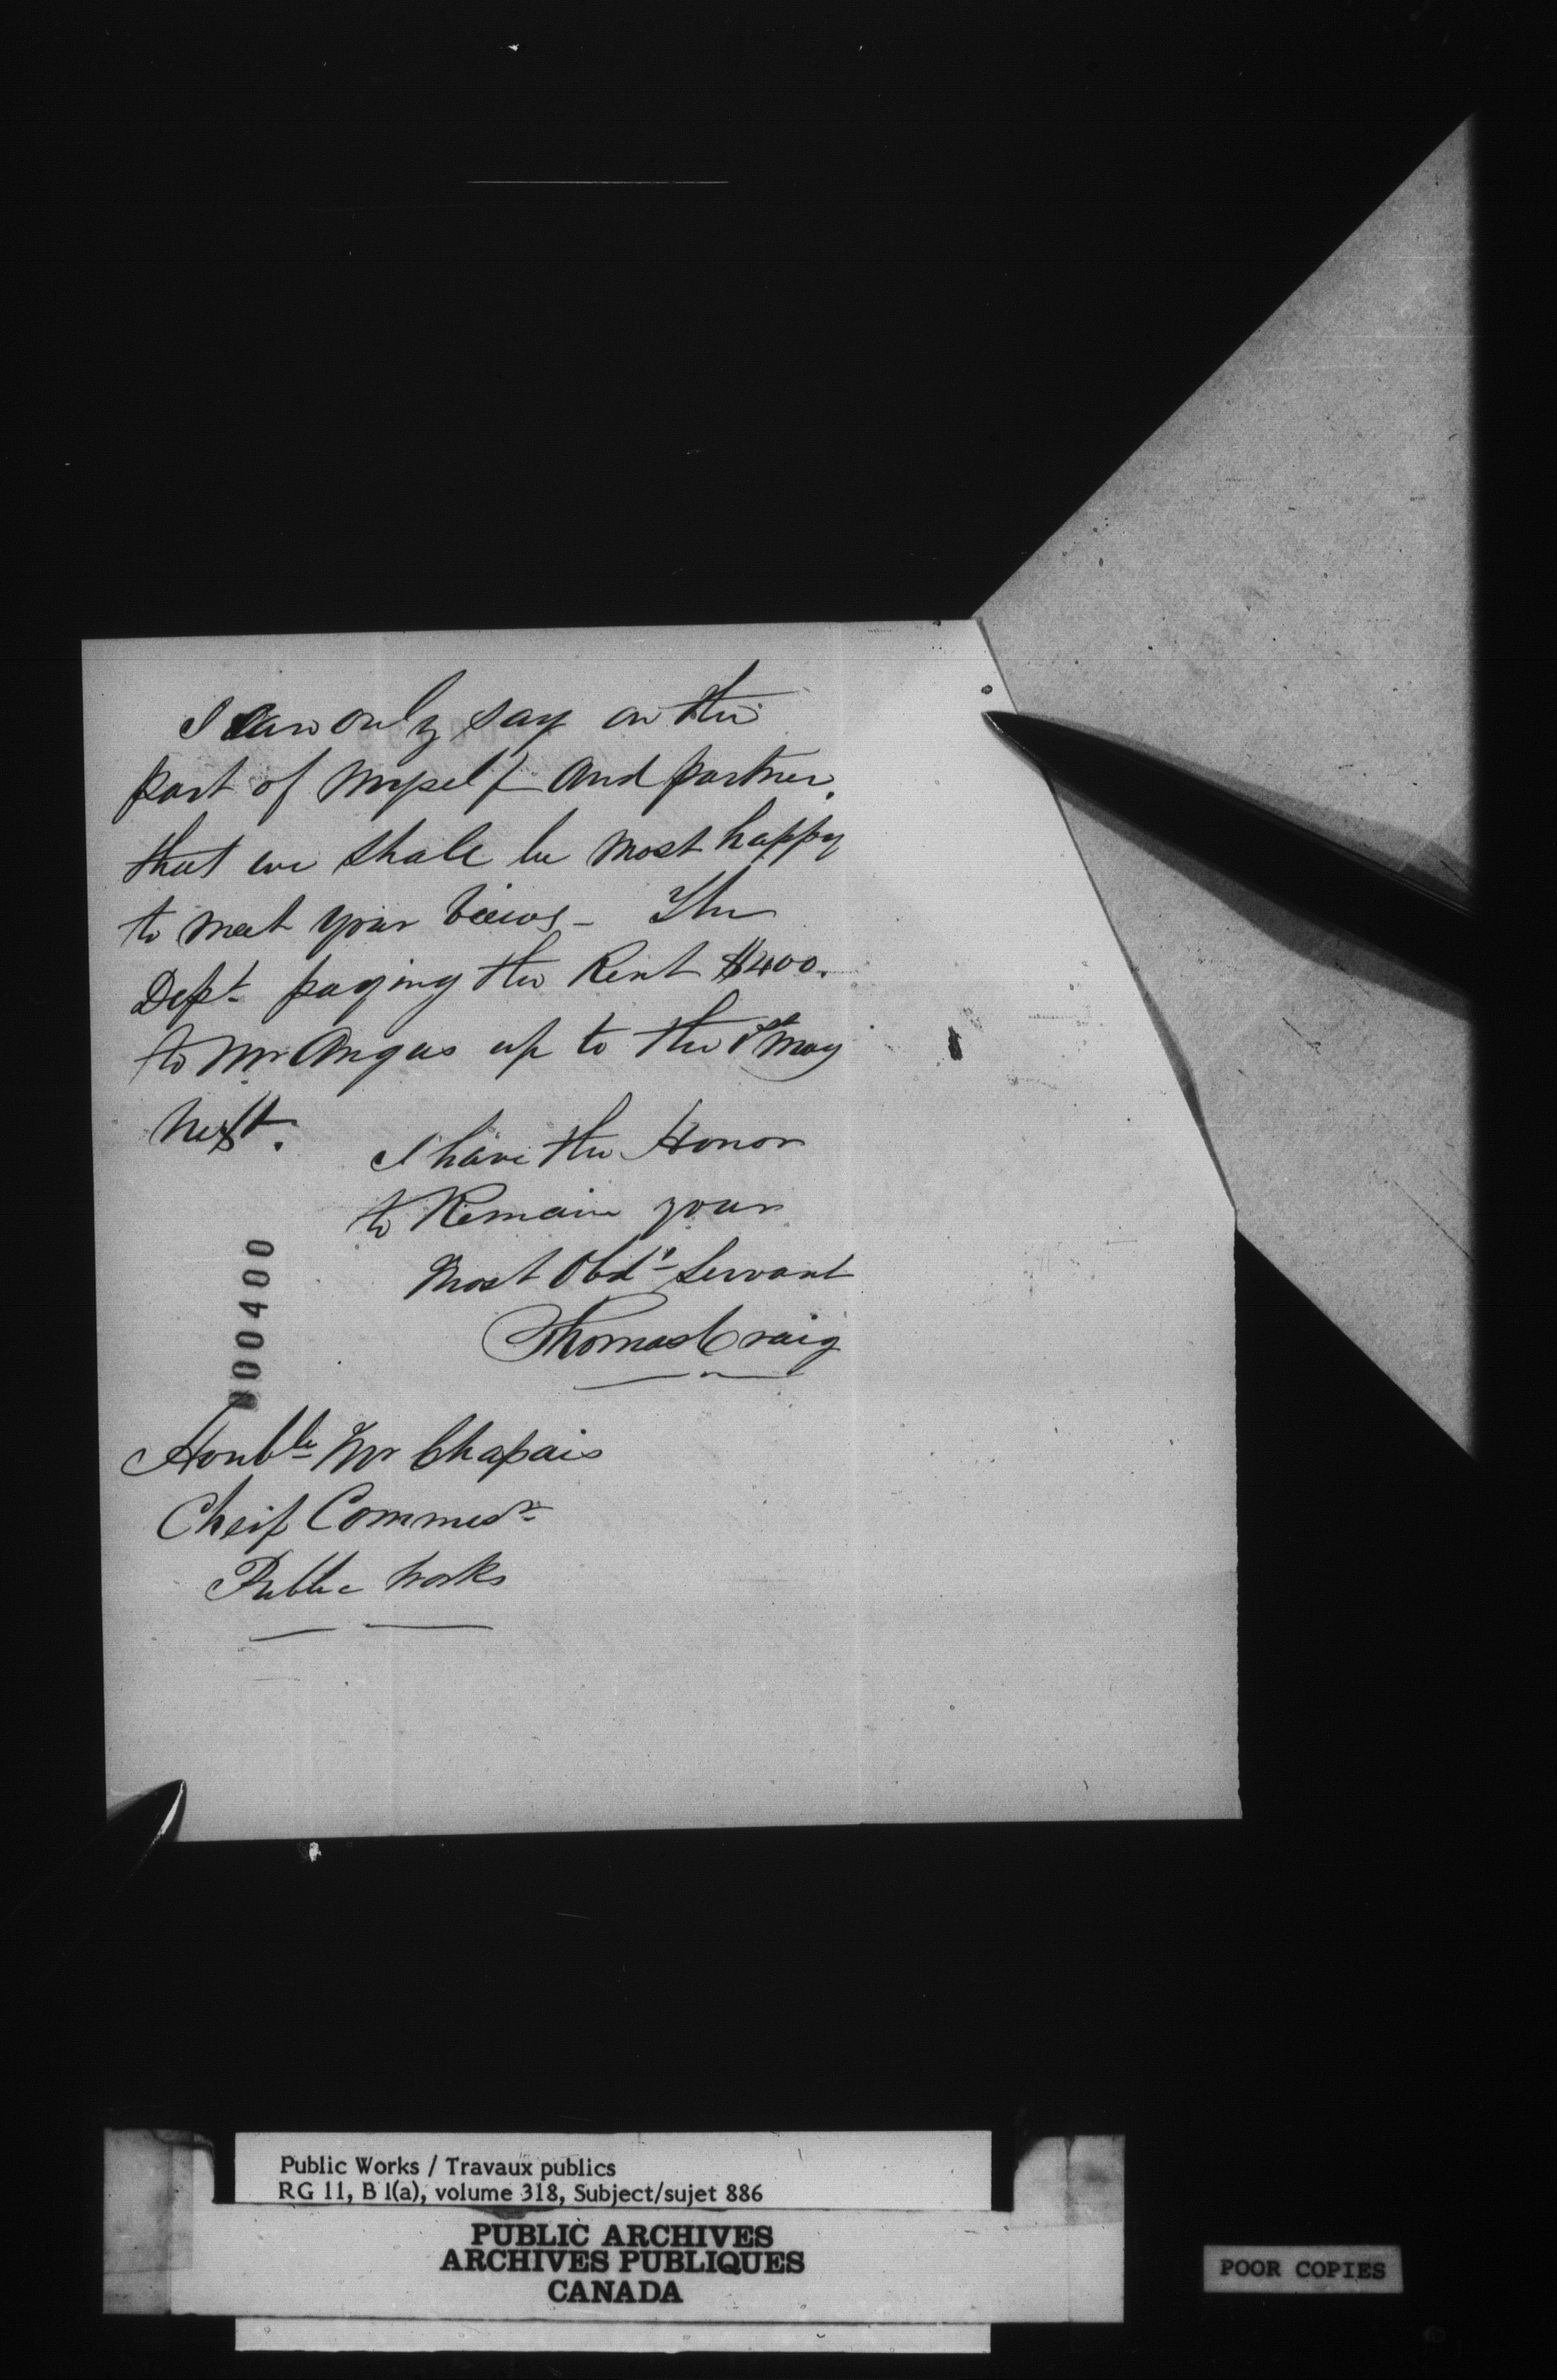 I can only say on the
part of myself and partner.
that we shall be most happy
to meet your views – The
Dept paying the Rent $400.
to Mr Angus up to the 1st May
Next.
I have the Honor
to Remain your
Most Obdt Servant
Thomas Craig
000400
Honble Mr Chapais
Cheif Commisr
Public Works
Public Works / Travaux publics
RG 11, B 1(a), volume 318, Subject/sujet 886
PUBLIC ARCHIVES
ARCHIVES PUBLIQUES
CANADA
POOR COPIES